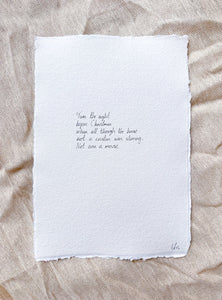 'Twas the night
before Christmas
when all through the house
not a creature was stirring,
Not even a mouse